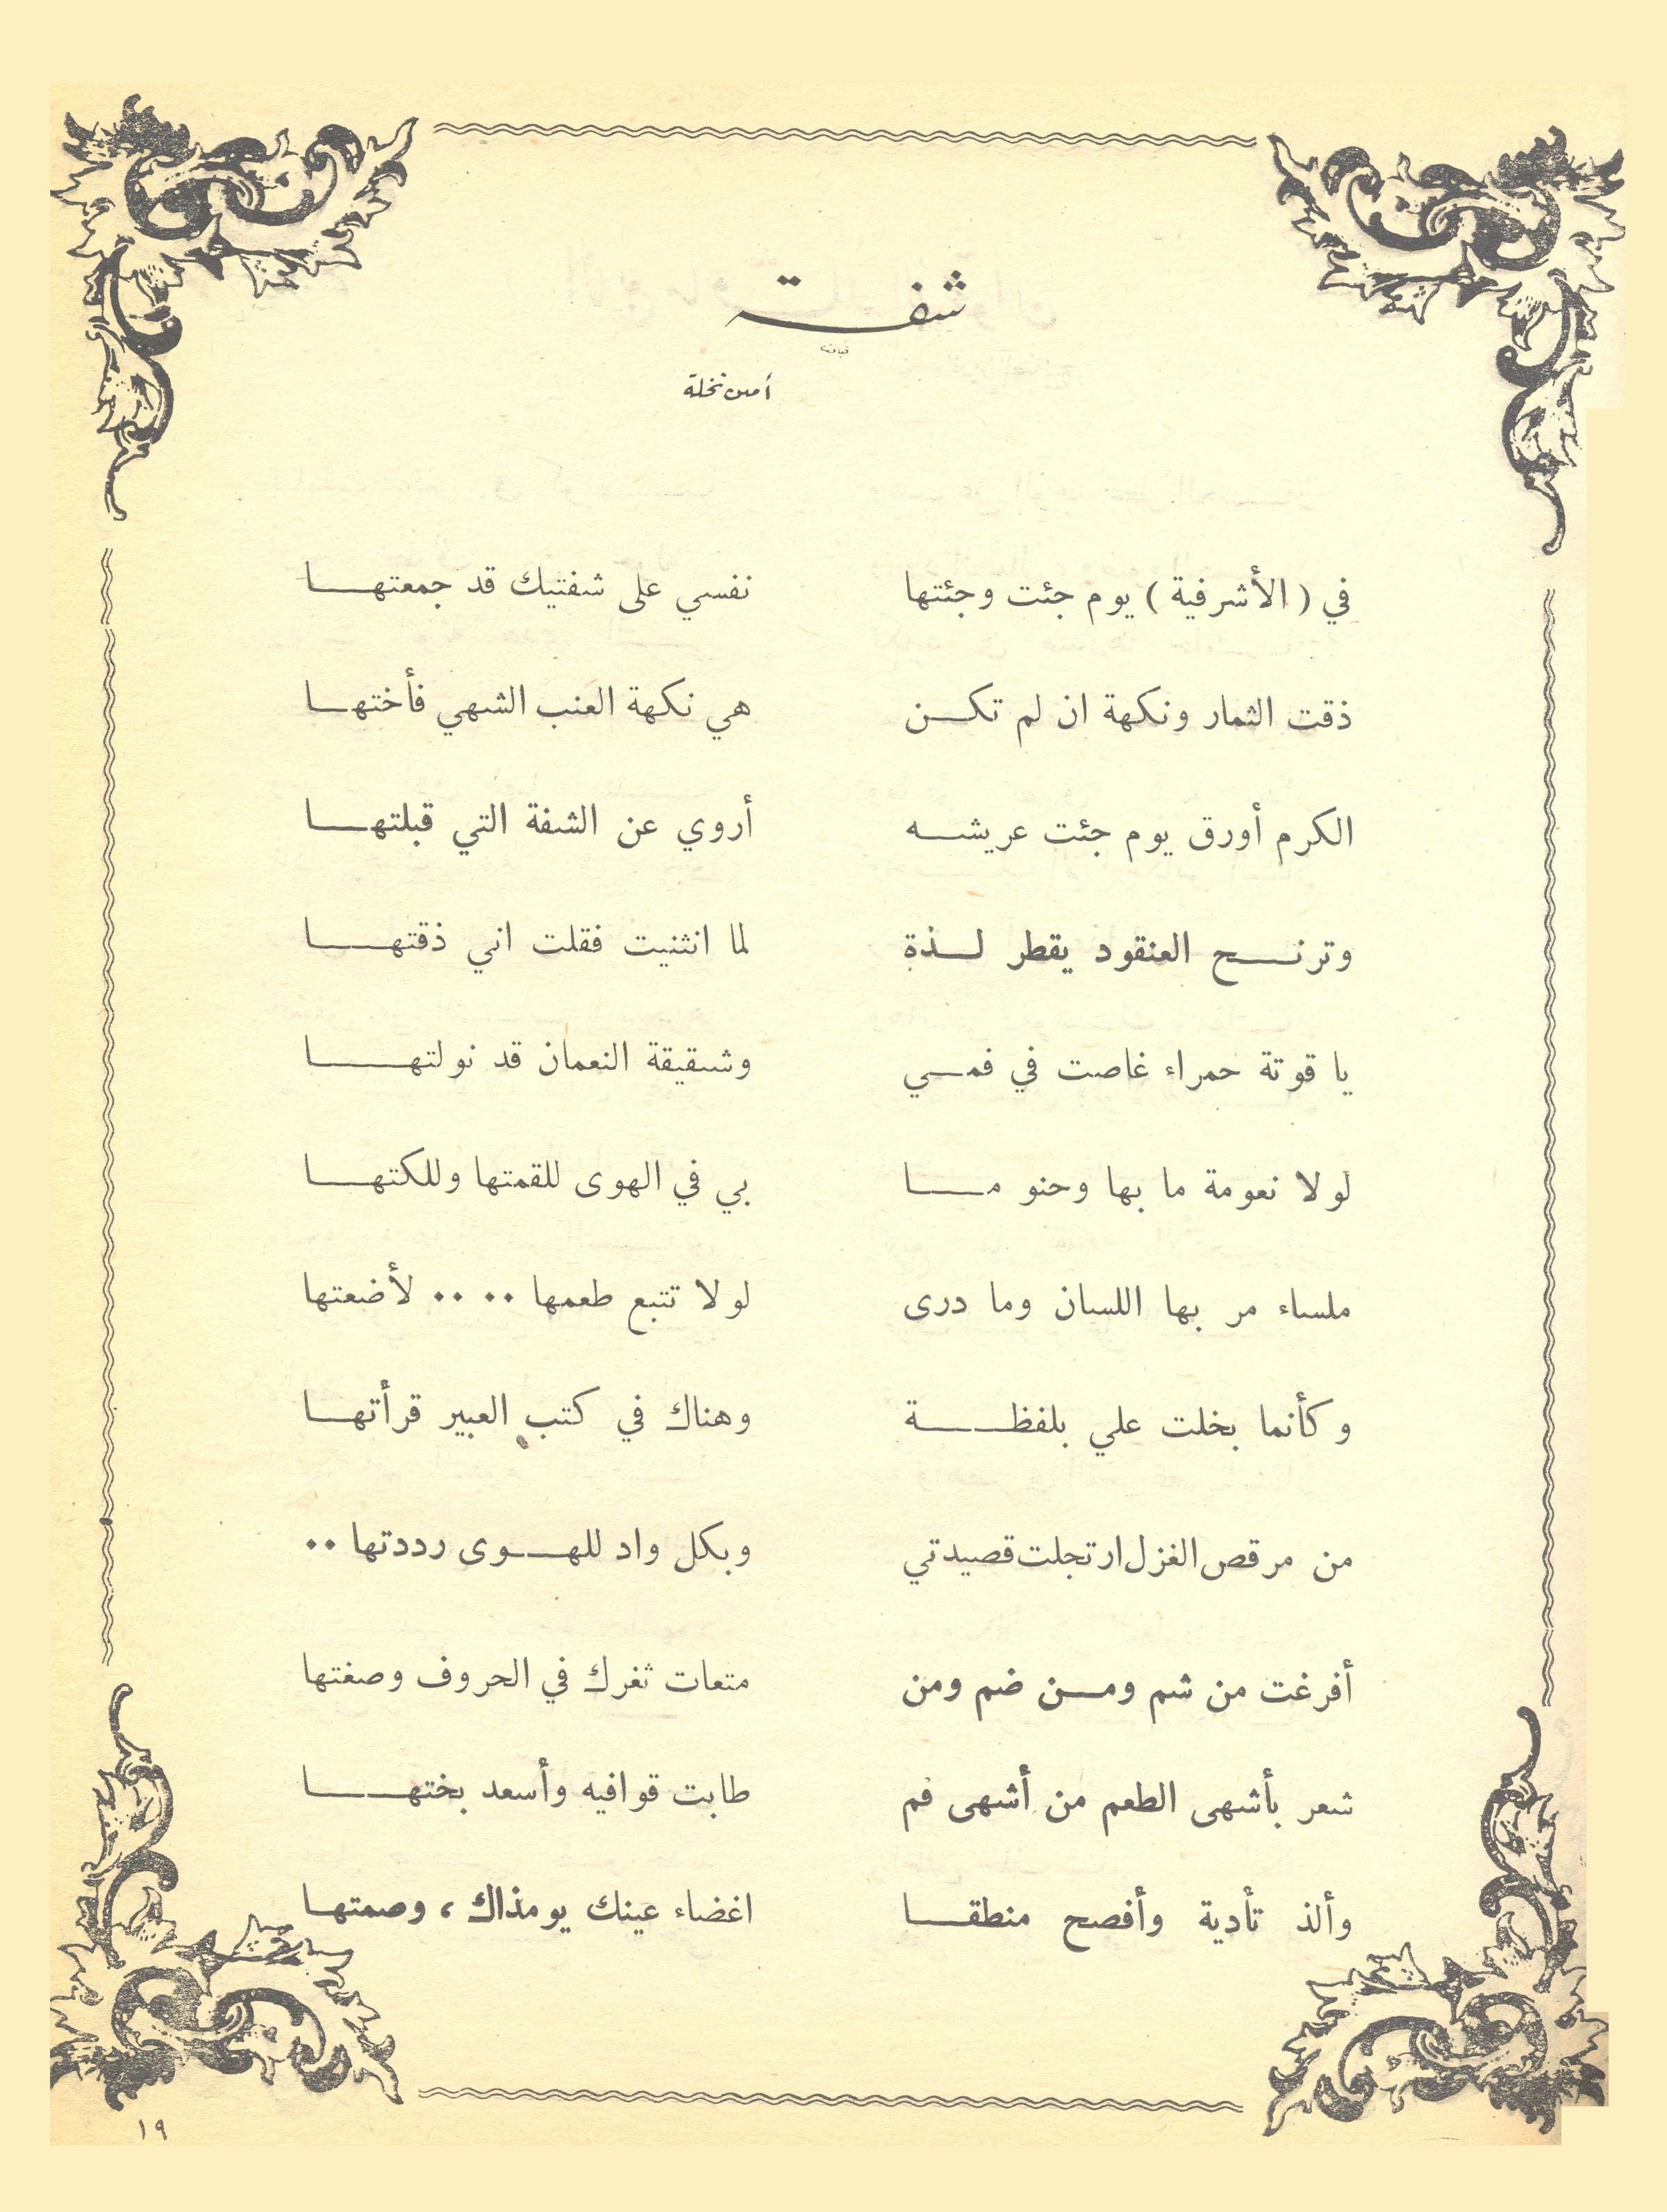 شفة
أمين نخلة
في ( الأشرفية ) يوم جئت وجئتها نفسي على شفتيك قد جمعتهـــا
ذقت الثمار ونكهة ان لم تكـــن هي نكهة العنب الشهي فأختهـــا
الكرم أورق يوم جئت عريشـــه أروي عن الشفة التي قبلتهـــا
وترنـــح العنقود يقطر لـــذة لما انثنيت فقلت اني ذقتهـــا
يا قوتة حمراء غاصت في فمـــي وشقيقة النعمان قد نولتهـــا
لولا نعومة ما بها وحنو مـــا بي في الهوى للقمتها وللكتهـــا
ملساء مر بها اللسان وما درى لولا تتبع طعمها .. .. لأضعتها
وكأنما بخلت علي بلفظـــة وهناك في كتب العبير قرأتهـــا
من مرقص الغزل ارتجلت قصيدتي وبكل واد للهـــوى رددتها ..
أفرغت من شم ومـــن ضم ومن متعات ثغرك في الحروف وصغتها
شعر بأشهى الطعم من أشهى فم طابت قوافيه وأسعد بختهـــا
وألذ تأدية وأفصح منطقـــا اغضاء عينك يومذاك ، وصمتهـــا
١٩